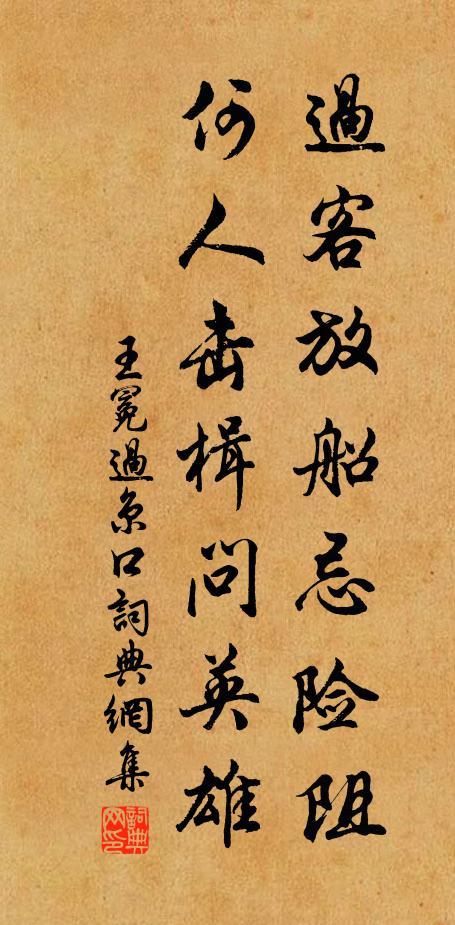 過客放船忌险阻
何人击楫問英雄
王冕過京口詞典網集
詞典网印